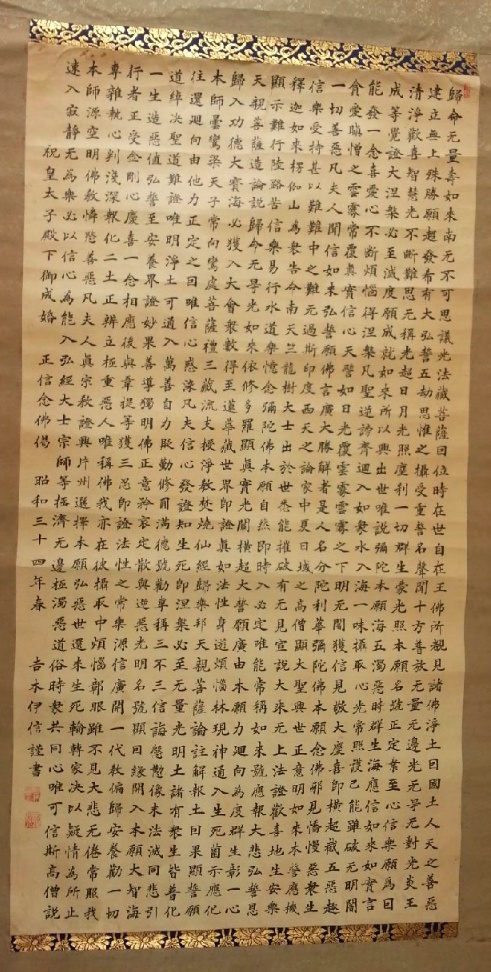 歸命无量壽如來南无不可思議光法藏菩薩因位時在世自在王佛所覩見諸佛淨土因國土人天之善惡
建立无上殊勝願超發希有大弘誓五劫思惟之攝受重誓名聲聞十方普放无量无邊光无㝵无對光炎王
清淨歡喜智慧光不斷難思无稱光超日月光照塵刹一切群生蒙光照本願名號正定業至心信樂願為因
成等覺證大涅槃必至滅度願成就如來所以興出世唯說彌陀本願海五濁惡時群生海應信如來如實言
能發一念喜愛心不斷煩惱得涅槃凡聖逆謗齊廻入如衆水入海一味攝取心光常照護已能雖破无明闇
貪愛瞋憎之雲霧常覆真實信心天譬如日光覆雲霧雲霧之下明无闇獲信見敬大慶喜即橫超截五惡趣
一切善惡凡夫人聞信如來弘誓願佛言廣大勝解者是人名分陀利華彌陀佛本願念佛邪見憍慢惡衆生
信樂受持甚以難難中之難无過斯印度西天之論家中夏日域之高僧顯大聖興世正意明如來本誓應機
釋迦如來楞伽山為衆告命南天竺龍樹大士出於世悉能摧破有无見宣說大乘无上法證歡喜地生安樂
顯示難行陸路苦信樂易行水道樂憶念彌陀佛本願自然即時入必定唯能常稱如來號應報大悲弘誓恩
天親菩薩造論說歸命无㝵光如來依修多羅顯真實光闡橫超大誓願廣由本願力廻向為度群生彰一心
歸入功德大寶海必獲入大會衆數得至蓮華藏世界即證真如法性身遊煩惱林現神通入生死薗示應化
本師曇鸞梁天子常向鸞處菩薩禮三藏流支授淨教焚燒仙經歸樂邦天親菩薩論註解報土因果顯誓願
往還廻向由他力正定之因唯信心惑染凡夫信心發證知生死即涅槃必至无量光明土諸有衆生皆普化
道綽決聖道難證唯明淨土可通入萬善自力貶勤修圓滿德號勸專稱三不三信誨慇懃像末法滅同悲引
一生造惡値弘誓至安養界證妙果善導獨明佛正意矜哀定散與逆惡光明名號顯因緣開入本願大智海
行者正受金剛心慶喜一念相應後與韋提等獲三忍即證法性之常樂源信廣開一代教偏歸安養勸一切
專雜執心判淺深報化二土正辨立極重惡人唯稱佛我亦在彼攝取中煩惱鄣眼雖不見大悲无倦常照我
本師源空明佛教憐愍善惡凡夫人真宗教證興片州選擇本願弘惡世還來生死輪轉家決以疑情為所止
速入寂靜无為樂必以信心為能入弘經大士宗師等拯濟无邊極濁惡道俗時衆共同心唯可信斯高僧說
祝皇太子殿下御成婚 正信念佛偈 昭和三十四年春 吉本伊信謹書